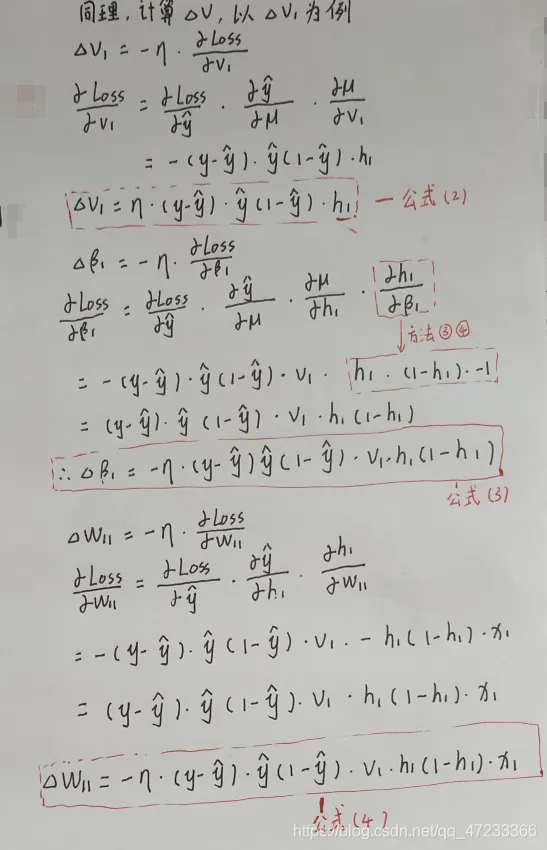 同理,计算 △V,以 △V₁ 为例
△V₁ = -η · ∂Loss/∂V₁
∂Loss/∂V₁ = ∂Loss/∂ŷ · ∂ŷ/∂μ · ∂μ/∂V₁
= -(y-ŷ) · ŷ(1-ŷ) · h₁
△V₁ = η · (y-ŷ) · ŷ(1-ŷ) · h₁ — 公式(2)
△β₁ = -η · ∂Loss/∂β₁
∂Loss/∂β₁ = ∂Loss/∂ŷ · ∂ŷ/∂μ · ∂μ/∂h₁ · ∂h₁/∂β₁
方法③④
= -(y-ŷ) · ŷ(1-ŷ) · V₁ · h₁ · (1-h₁) · -1
= (y-ŷ) · ŷ (1-ŷ) · V₁ · h₁(1-h₁)
∴ △β₁ = -η · (y-ŷ) ŷ(1-ŷ) · V₁ · h₁(1-h₁)
公式(3)
△W₁₁ = -η · ∂Loss/∂W₁₁
∂Loss/∂W₁₁ = ∂Loss/∂ŷ · ∂ŷ/∂h₁ · ∂h₁/∂W₁₁
= -(y-ŷ) · ŷ(1-ŷ) · V₁ · - h₁(1-h₁) · x₁
= (y-ŷ) · ŷ(1-ŷ) · V₁ · h₁(1-h₁) · x₁
△W₁₁ = -η · (y-ŷ) · ŷ(1-ŷ) · V₁ · h₁(1-h₁) · x₁
公式(4)
https://blog.csdn.net/qq_47233366